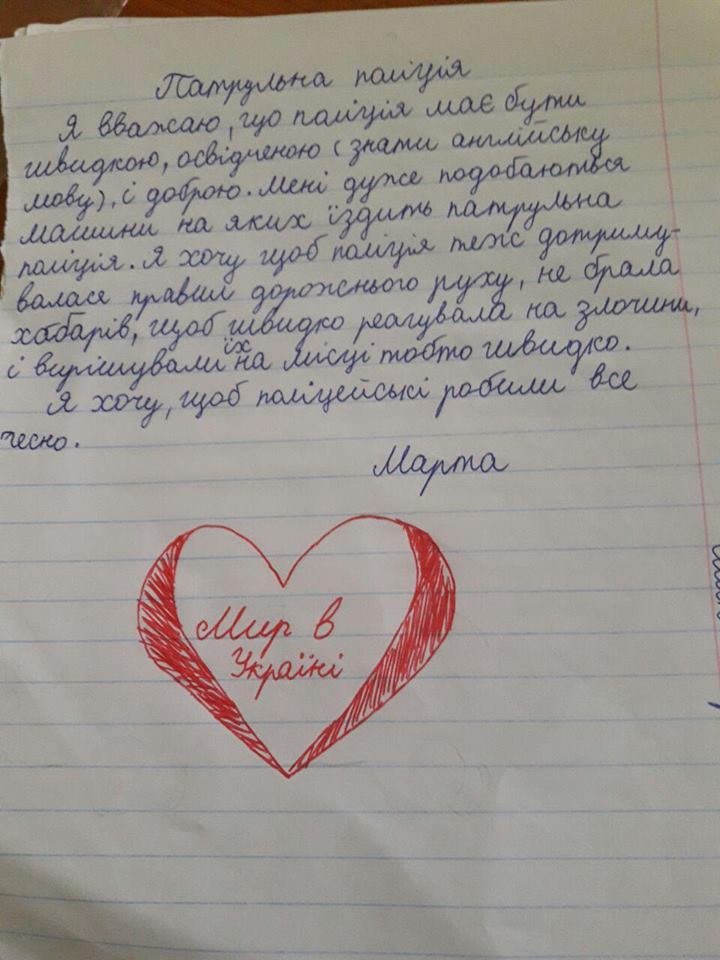 Патрульна поліція
Я вважаю, що поліція має бути
швидкою, освідченою (знати англійську
мову), і доброю. Мені дуже подобаються
машини на яких їздить патрульна
поліція. Я хочу щоб поліція теж дотриму-
валася правил дорожнього руху, не брала
хабарів, щоб швидко реагувала на злочини,
і вирішували їх на місці тобто швидко.
Я хочу, щоб поліцейські робили все
чесно.
Марта
Мир в
Україні